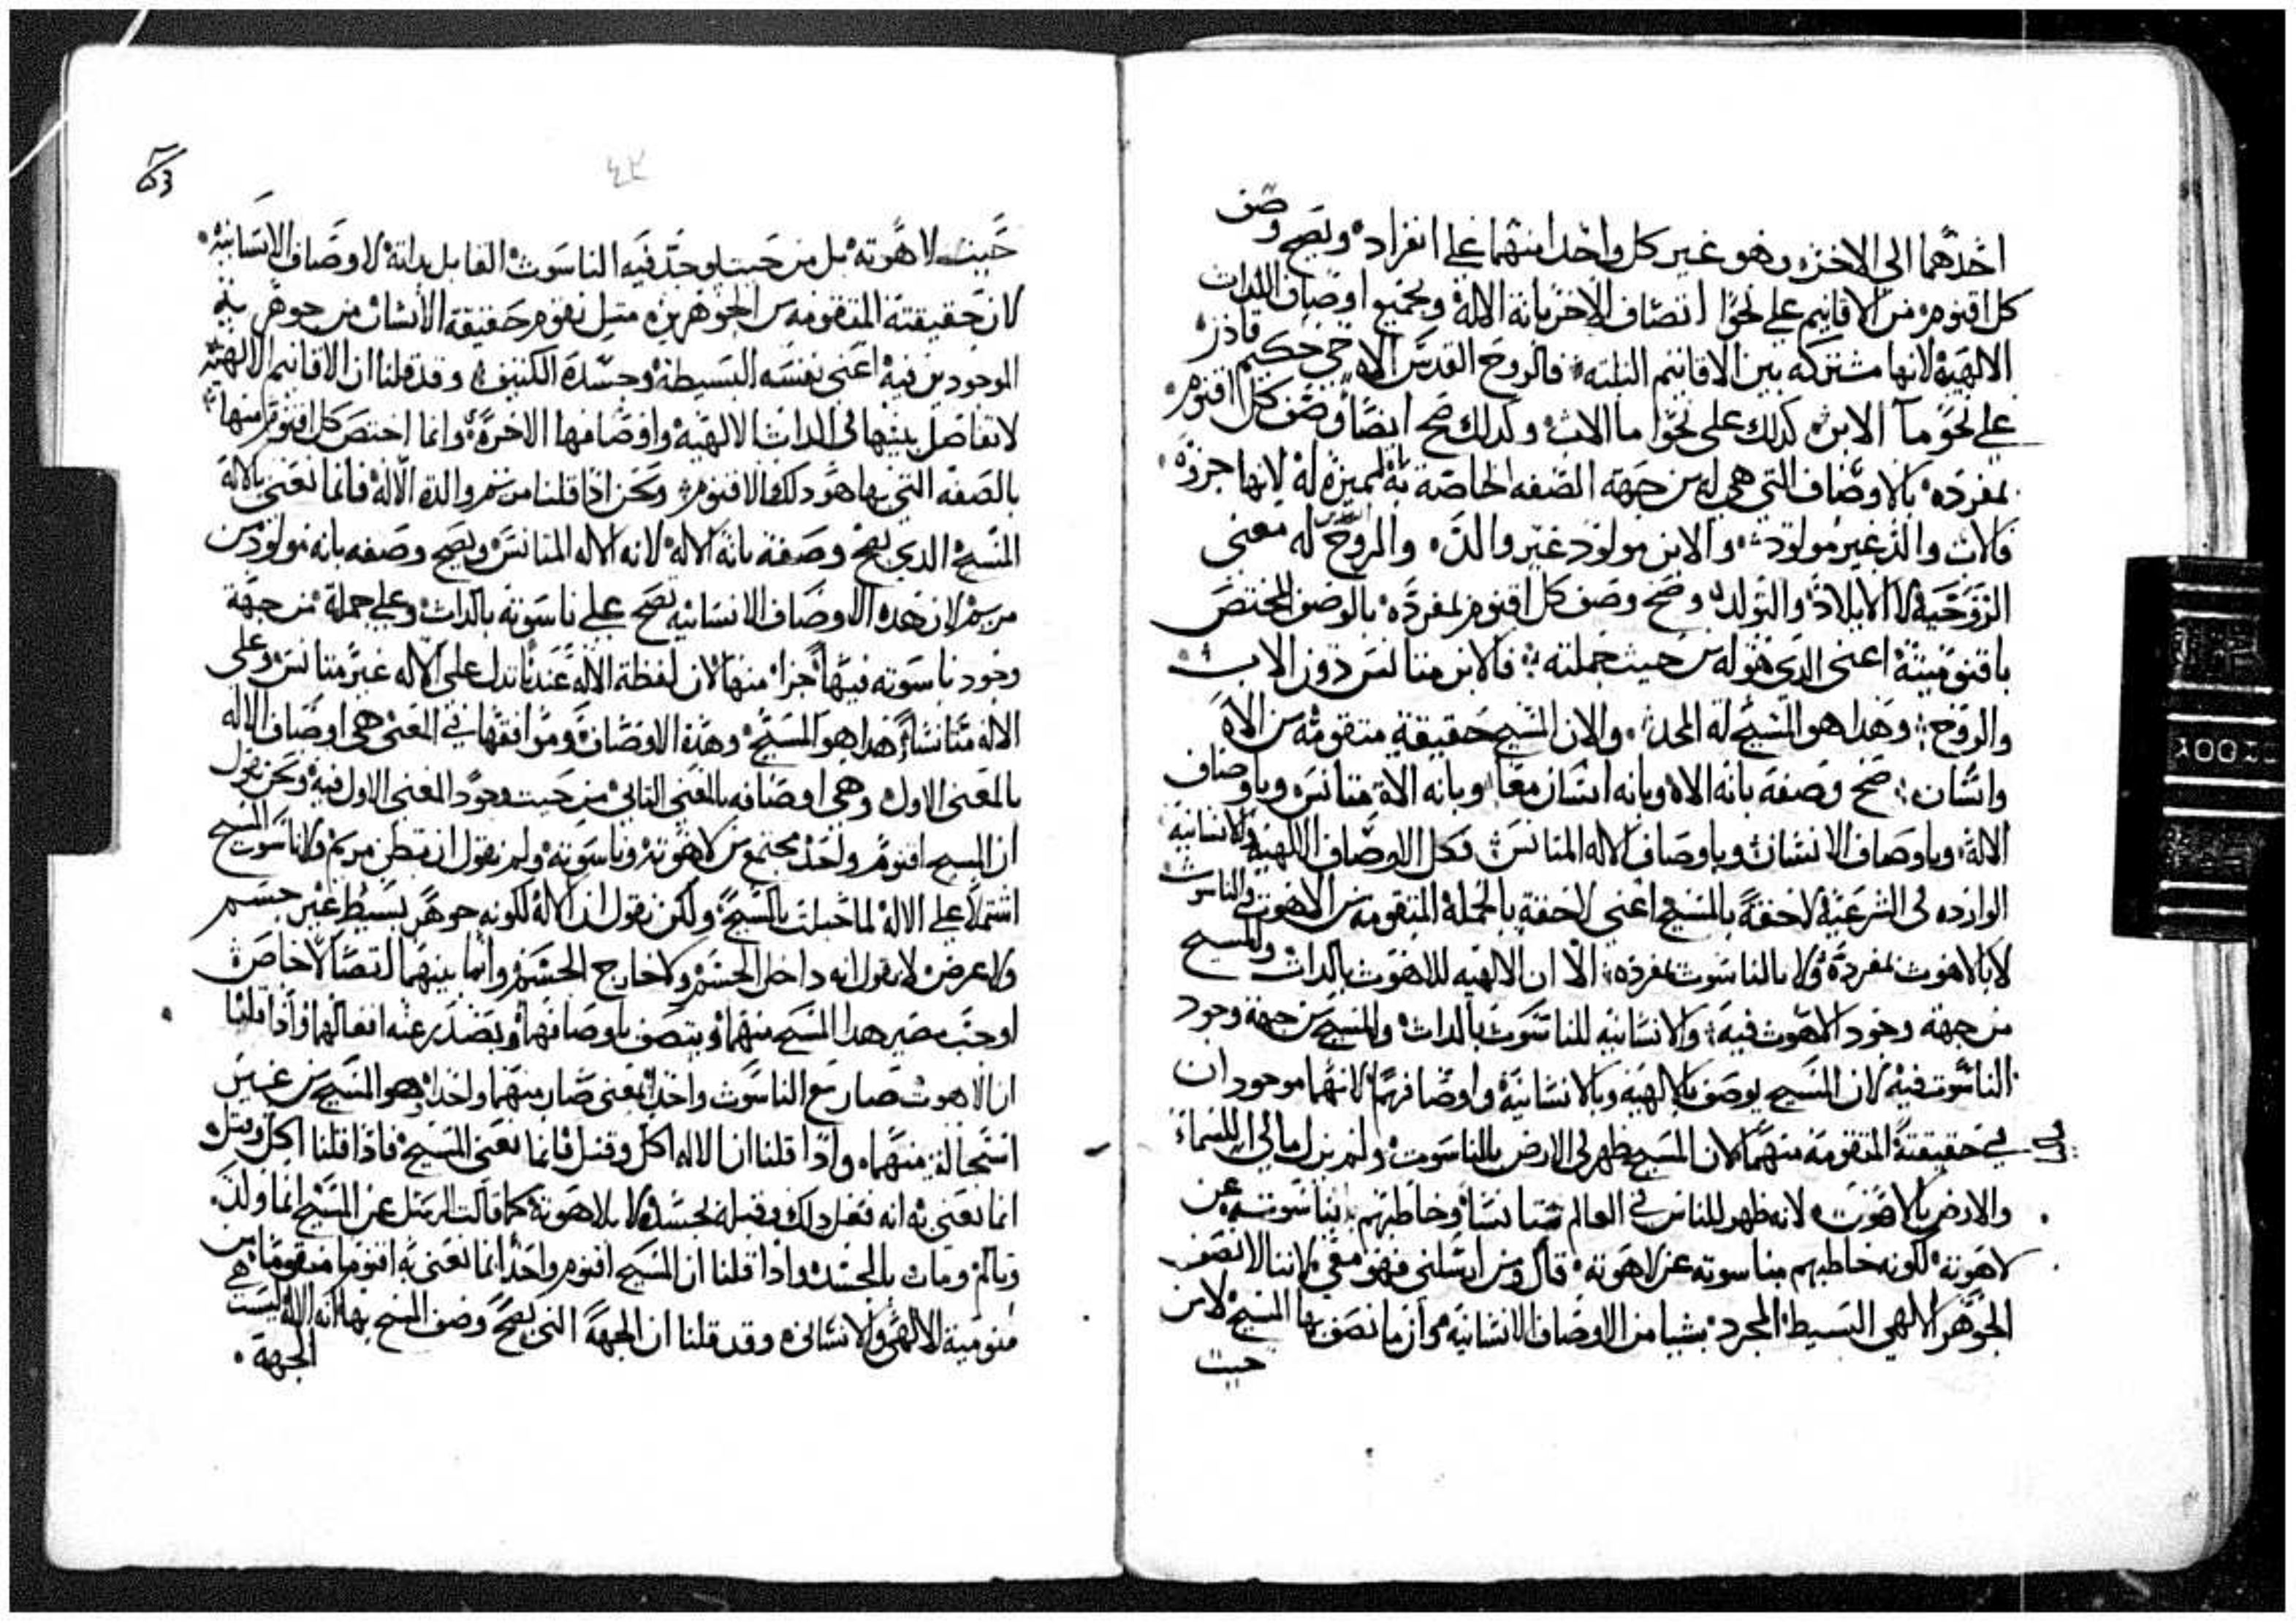 احدهما الى الاخر، وهو غير كل واحد منهما على انفراده، ويصح وصف
كل اقنوم من الاقانيم على نحو اتصاف الاخر بانه الاله وبجميع اوصاف الذات
الالهية لانها مشتركه بين الاقانيم الثلثه، فالروح القدس الاه حي حكيم قادر
على نحو ما الابن كذلك على نحو ما الاب، وكذلك صح ايضا وصف كل اقنوم
بمفرده بالاوصاف التي هي له من جهة الصفه الخاصة به المميزه له لانها جزوه
فالاب والد غير مولود، والابن مولود غير والد، والروح له معنى
الزوحيه لا الايلاد والتولد، وصح وصف كل اقنوم بمفرده بالوصف المختص
باقنوميته اعنى الذي هو له من حيث جملته، فالابن متانس دون الاب
والروح، وهذا هو المسيح له المجد، والان المسيح حقيقة متقومة من الاه
وانسان، صح وصفه بانه الاه وبانه انسان معا وبانه الاه متانس وباوصاف
الاله، وباوصاف الانسان وباوصاف الاله المتانس، فكل الاوصاف الالهية والانسانيه
الوارده في الشرعية لاحقة بالمسيح اعني لاحقة بالجملة المتقومه من اللاهوت والناسوت
لا بالاهوت بمفرده ولا بالناسوت بمفرده، الا ان الالهيه لللاهوت بالذات وللمسيح
من جهة وجود الاهوت فيه، والانسانيه للناسوت بالذات والمسيح من جهة وجود
الناسوت فيه لان المسيح يوصف بالالهية وبالانسانية واوصافهما لانهما موجودان
في حقيقتة المتقومة منهما لان المسيح ظهر في الارض بالناسوت ولم يزل مالي السماء
والارض بالاهوت، لانه ظهر للناس في العالم متانسا وخاطبهم بناسوته عن
لاهوته، لكونه خاطبهم بناسوته عن لاهوته، قال ومن ارسلني فهو معي لاننا لا نصف
الجوهر الالهي البسيط المجرد بشيا من الاوصاف الانسانيه وان ما نصف بها المسيح لا من
حيث
٤٢
حيث لاهوته بل من حيث وجد فيه الناسوت القابل بذاته لاوصاف الانسانيه
لان حقيقته المتقومه من الجوهرين، مثل تقوم حقيقة الانسان من جوهريته
الموجودين فيه اعني نفسه البسيطة وجسده الكثيف، وقد قلنا ان الاقانيم الالهيه
لا تفاصل بينها في الذات الالهية واوصافها الاخرة، وانما اختص كل اقنوم منها
بالصفه التي بها هو ذلك الاقنوم، ونحن اذا قلنا مريم والدة الاله فانما نعني بالاله
المسيح الذي يصح وصفه بانه الاله لانه الاله المتانس، ويصح وصفه بانه مولود من
مريم لان هذه الاوصاف الانسانيه تصح على ناسوته بالذات، وعلى جملته من جهة
وجود ناسوته فيها جزا منها لان لفظة الاله عندنا تدل على الاله غير متانس، وعلى
الاله متانسا هذا هو المسيح، وهذه الاوصاف وموافقها في المعنى هي اوصاف الاله
بالمعنى الاول وهي اوصافه بالمعنى الثاني من حيث وجود المعنى الاول فيه ونحن نقول
ان المسيح اقنوم واحد مجتمع من لاهوته وناسوته ولم نقول ان بطن مريم ولا ناسوت المسيح
اشتملا على الاله لما حبلت بالمسيح، ولكن نقول ان الاله لكونه جوهر بسيط غير جسم
ولا عرض لا نقول انه داخل الجسم ولا خارج الجسم وانما بينهما اتصالا خاص
اوجب مصير هذا المسيح منهما ويتصف باوصافهما وتصدر عنه افعالهما واذا قلنا
ان الاهوت صار مع الناسوت واحدا نعنى صار منهما واحدا هو المسيح من غير
استحالة منهما، واذا قلنا ان الاله اكل وقتل فانما نعني المسيح، فاذا قلنا اكل وقتل
انما نعني به انه فعل ذلك وقبله بجسده لا بلاهوته كما قالت الرسل عن المسيح انما ولد
وتالم ومات بالجسد، واذا قلنا ان المسيح اقنوم واحد انما نعني به اقنوما متقوما من
قنومية الالهي والانساني وقد قلنا ان الجهة التي يصح وصف المسيح بها انه الاله ليست هي
الجهة